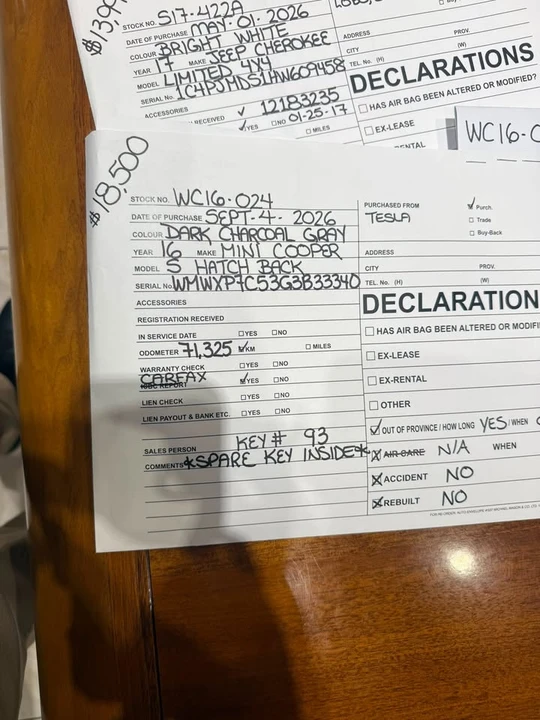 $13,99
STOCK NO. S17-422A
DATE OF PURCHASE MAY-01-2026
COLOUR BRIGHT WHITE
YEAR 17 MAKE JEEP CHEROKEE
MODEL LIMITED 4X4
SERIAL No. 1C4PJMDS1HW609458
ACCESSORIES
RECEIVED ✓ 12183235
☑YES ☐NO 01-25-17
☐ MILES
ADDRESS
CITY
TEL. No. (H) (W)
DECLARATIONS
☐ HAS AIR BAG BEEN ALTERED OR MODIFIED?
☐ EX-LEASE
WC16-0
$18,500
STOCK NO. WC16-024
DATE OF PURCHASE SEPT-4-2026
COLOUR DARK CHARCOAL GRAY
YEAR 16 MAKE MINI COOPER
MODEL S HATCH BACK
SERIAL No. WMWXP7C53G3B33340
ACCESSORIES
REGISTRATION RECEIVED
IN SERVICE DATE ☐YES ☐NO
ODOMETER 71,325 ☑KM ☐ MILES
WARRANTY CHECK ☐YES ☐NO
CARFAX ☑YES ☐NO
LIEN CHECK ☐YES ☐NO
LIEN PAYOUT & BANK ETC. ☐YES ☐NO
KEY# 93
SALES PERSON
COMMENTS *SPARE KEY INSIDE*
PURCHASED FROM ☑ Purch.
TESLA ☐ Trade
☐ Buy-Back
ADDRESS
CITY PROV.
TEL. No. (H) (W)
DECLARATION
☐ HAS AIR BAG BEEN ALTERED OR MODIFI
☐ EX-LEASE
☐ EX-RENTAL
☐ OTHER
☑ OUT OF PROVINCE / HOW LONG YES / WHEN
☒ AIR CARE N/A WHEN
☒ ACCIDENT NO
☒ REBUILT NO